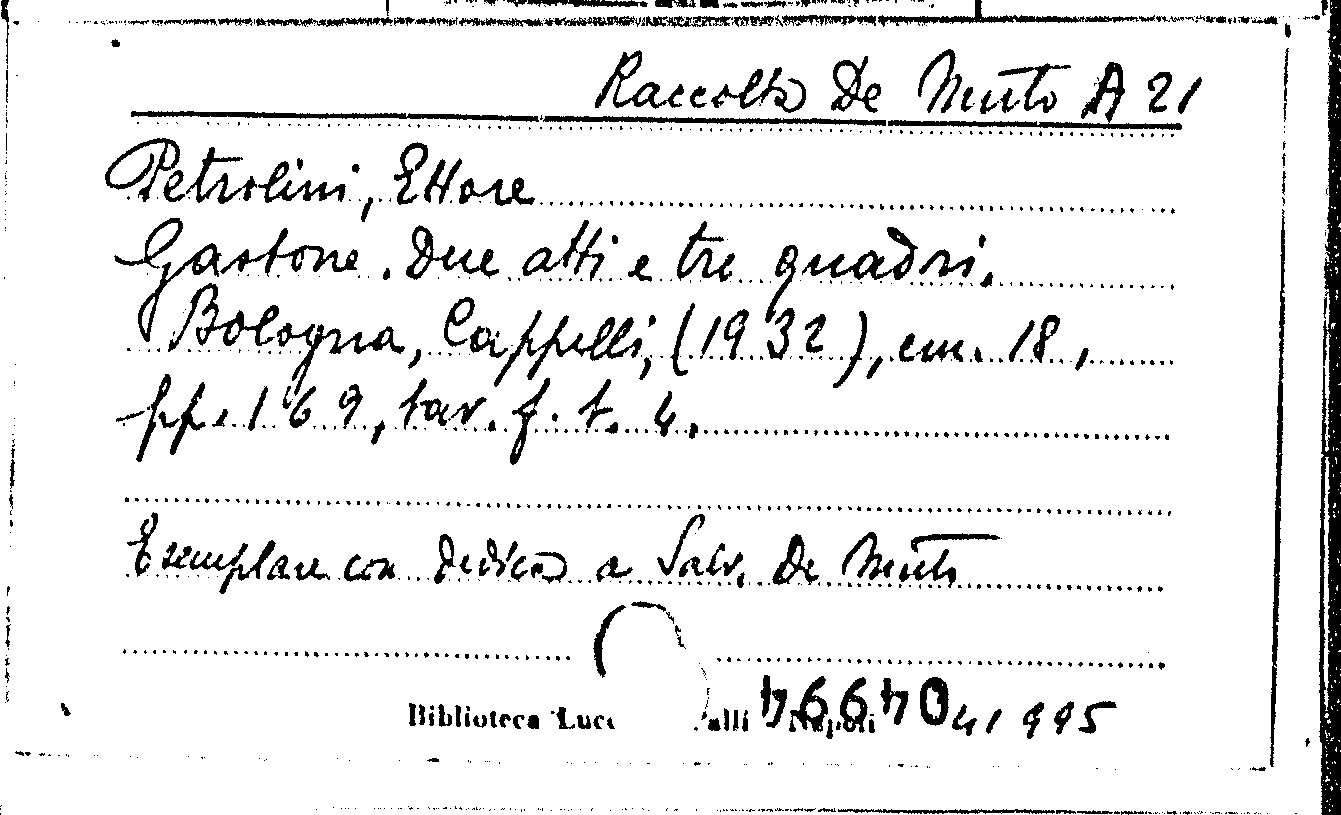 Raccolta De Muto A 21
Petrolini, Ettore
Gastone. Due atti e tre quadri.
Bologna, Cappelli, (1932), cm. 18,
pp. 169, tav. f. t. 4.
Esemplare con dedica a Salv. De Muto
Biblioteca Napoli 41995